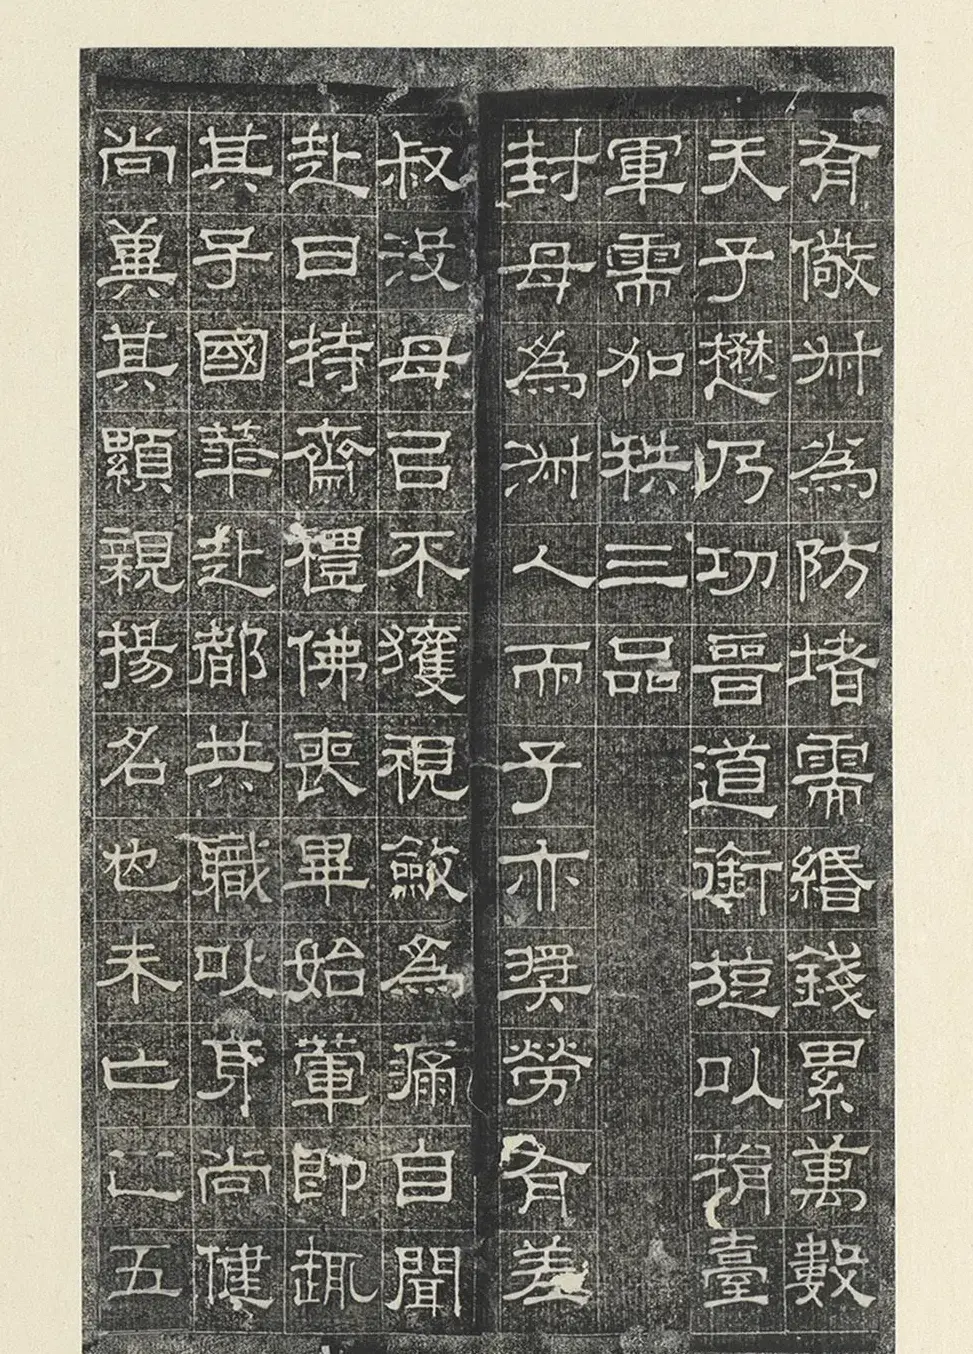 有儆叔為防堵需緡錢累萬數
天子懋乃功晉道銜旋以捐臺
軍需加秩三品
封母為淑人而子亦奬勞有差
叔没母㠯不獲視斂為痛自聞
赴曰持齋禮佛喪畢始葷即輒
其子國華赴都共職以身尚健
尚冀其顯親揚名也未亡五